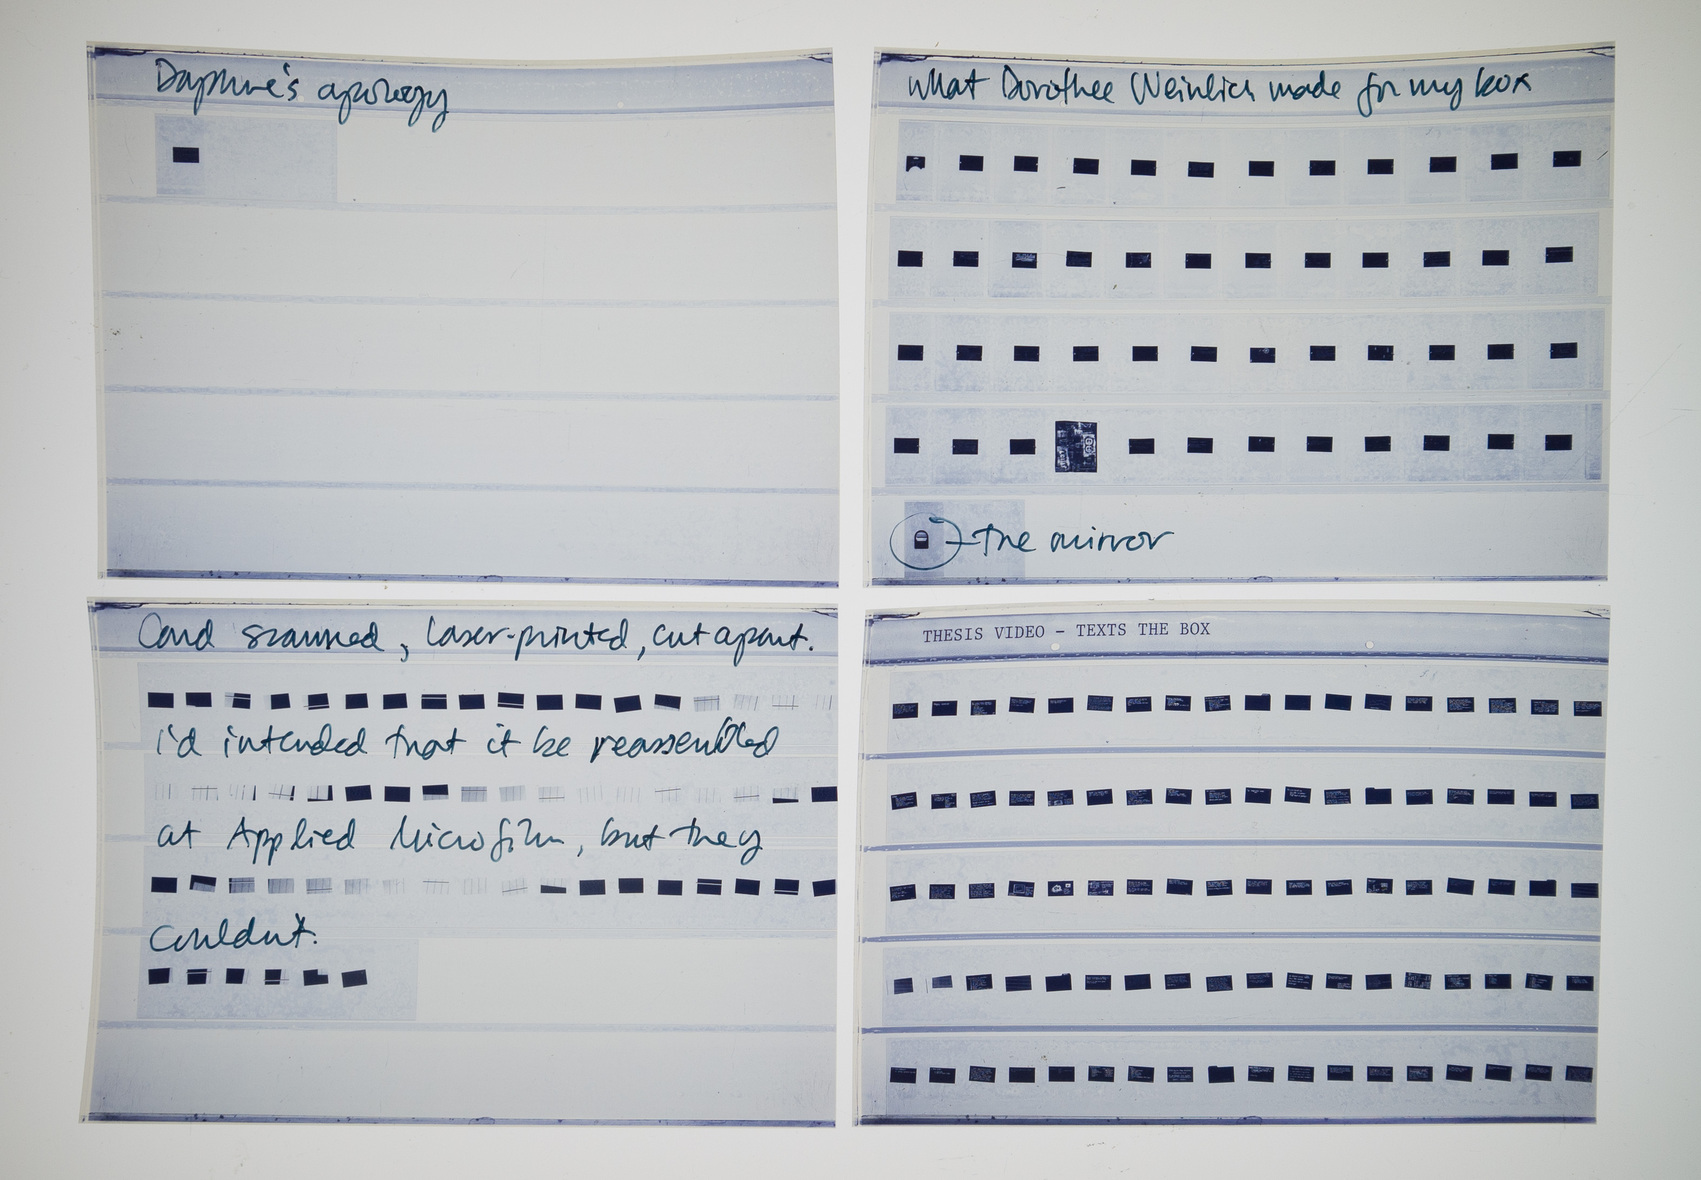 Daphne's apology
what Dorothee Weinlich made for my box
the mirror
Card scanned, laser-printed, cut apart.
i'd intended that it be reassembled
at Applied Microfilm, but they
couldn't.
THESIS VIDEO - TEXTS THE BOX